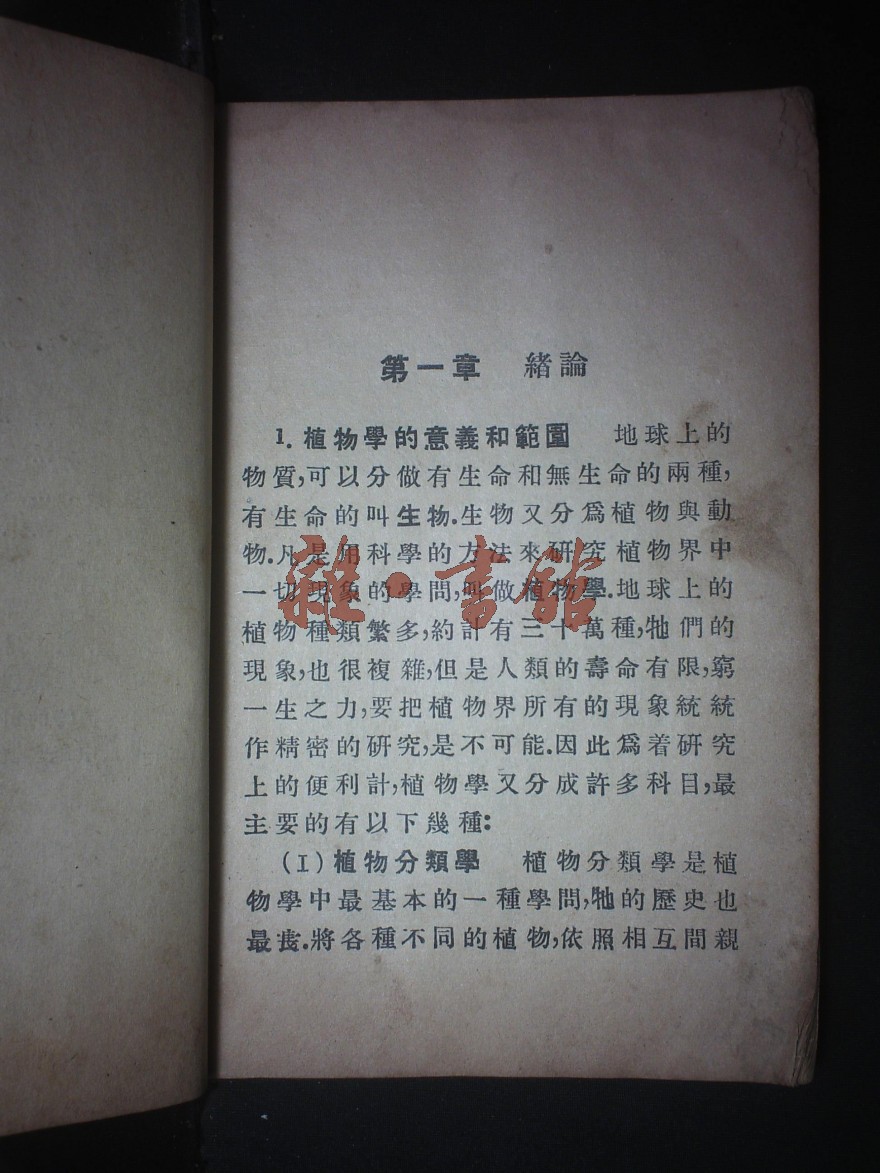 第一章 緒論
1. 植物學的意義和範圍 地球上的
物質,可以分做有生命和無生命的兩種,
有生命的叫生物.生物又分爲植物與動
物.凡是用科學的方法來研究植物界中
一切現象的學問,叫做植物學.地球上的
植物種類繁多,約計有三十萬種,牠們的
現象,也很複雜,但是人類的壽命有限,窮
一生之力,要把植物界所有的現象統統
作精密的研究,是不可能.因此爲着研究
上的便利計,植物學又分成許多科目,最
主要的有以下幾種:
(I) 植物分類學 植物分類學是植
物學中最基本的一種學問,牠的歷史也
最.將各種不同的植物,依照相互間親
雜·書館